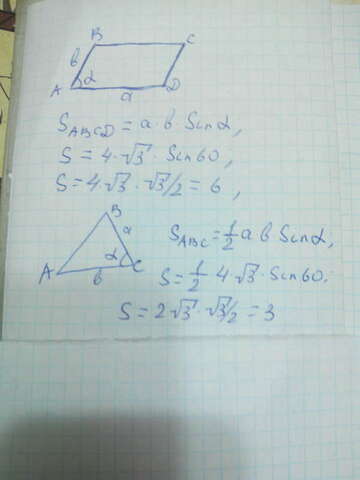 B C
b α
A a D
S_ABCD = a · b · Sinα,
S = 4 · √3 · Sin60,
S = 4 · √3 · √3/2 = 6,
B
a
α
A b C
S_ABC = 1/2 a b Sinα,
S = 1/2 4 · √3 · Sin60,
S = 2√3 · √3/2 = 3